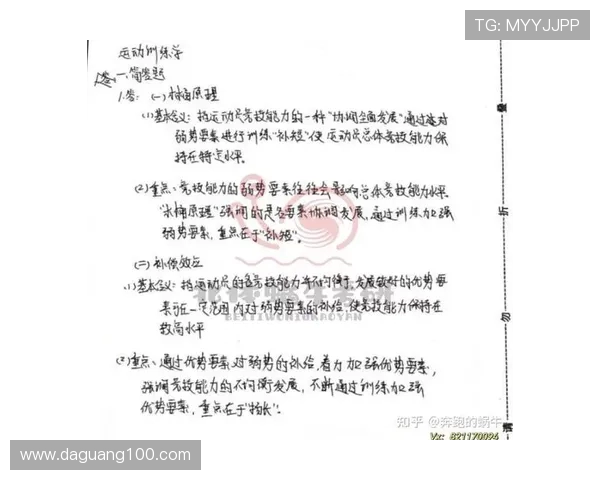 TG: MYYJJPP
运动训练学
一.简答题
1.答: (一)木桶原理
(1)基本含义: 指运动员竞技能力的一种"协调全面发展"通过针对
弱势要素进行训练"补短"使运动员总体竞技能力保
持在特定水平.
(2)重点: 竞技能力的弱势要素往往会影响总体竞技能力水平
"木桶原理"强调的是各要素协调发展, 通过训练加强
弱势要素, 重点在于"补短".
(二)补偿效应
(1)基本含义: 指运动员的各竞技能力并不均衡, 发展较好的优势要
素可在一定范围内对弱势要素的补偿, 使竞技能力保持在
较高水平
(2)重点: 通过优势要素对弱势的补偿, 着力加强优势要素,
强调竞技能力的不均衡发展, 不断通过训练加强
优势要素, 重点在于"特长".
北体蜗牛考研
BEITIWONIUKAOYAN
叠
折
勿
请
知乎 @奔跑的蜗牛
Vx: 821170094
www.daguang100.com